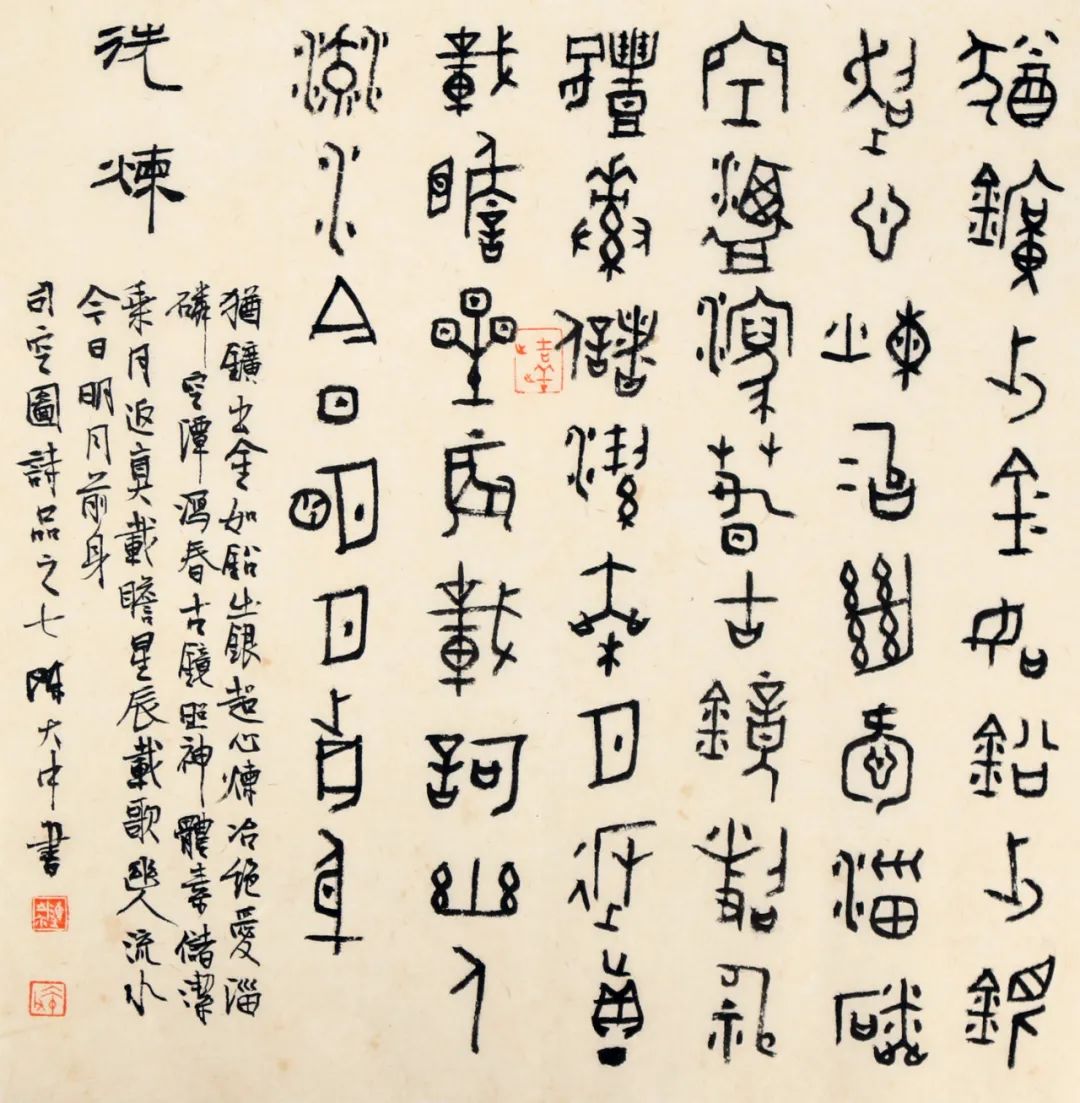 猶鑛出金如鉛出銀
超心煉冶絕愛淄磷
空潭瀉春古鏡照神
體素儲潔乘月返真
載瞻星辰載歌幽人
流水今日明月前身
洗煉
猶鑛出金如鉛出銀超心煉冶絕愛淄
磷空潭瀉春古鏡照神體素儲潔
乘月返真載瞻星辰載歌幽人流水
今日明月前身
司空圖詩品之七陳大中書